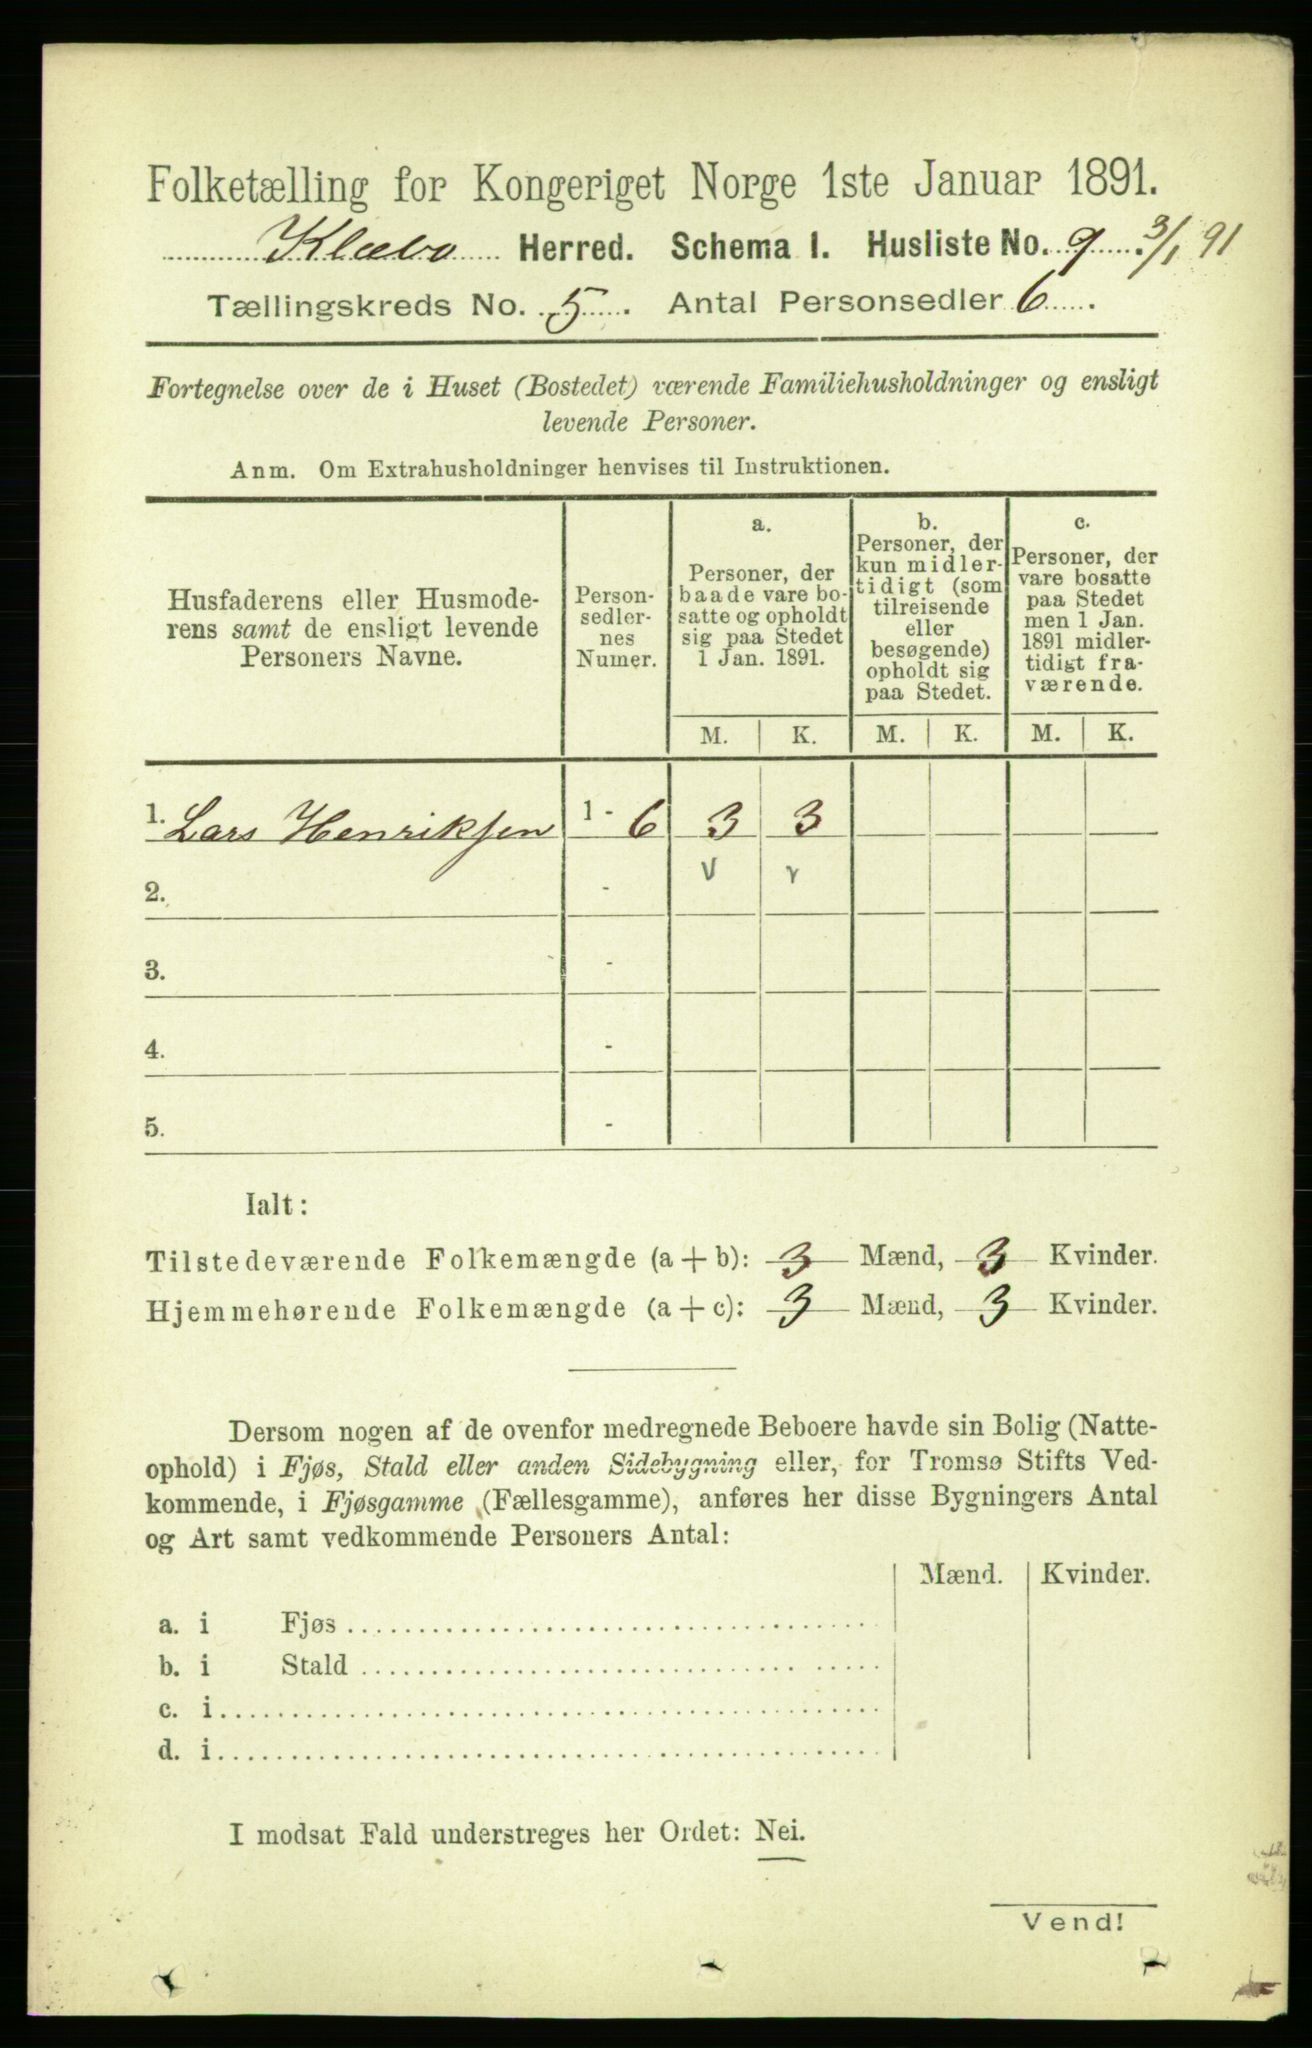 Folketælling for Kongeriget Norge 1ste Januar 1891.
Klæbo Herred. Schema 1. Husliste No. 9. 3/1 91
Tællingskreds No. 5. Antal Personsedler 6.
Fortegnelse over de i Huset (Bostedet) værende Familiehusholdninger og ensligt
levende Personer.
Anm. Om Extrahusholdninger henvises til Instruktionen.
Husfaderens eller Husmode-
rens samt de ensligt levende
Personers Navne.
Person-
sedler-
nes
Numer.
a.
Personer, der
baade vare bo-
satte og opholdt
sig paa Stedet
1 Jan. 1891.
b.
Personer, der
kun midler-
tidigt (som
tilreisende
eller
besøgende)
opholdt sig
paa Stedet.
c.
Personer, der
vare bosatte
paa Stedet
men 1 Jan.
1891 midler-
tidigt fra-
værende.
M. K. M. K. M. K.
1. Lars Henriksen 1 - 6 3 3
2. - v v
3. -
4. -
5. -
Ialt:
Tilstedeværende Folkemængde (a + b): 3 Mænd, 3 Kvinder.
Hjemmehørende Folkemængde (a + c): 3 Mænd, 3 Kvinder.
Dersom nogen af de ovenfor medregnede Beboere havde sin Bolig (Natte-
ophold) i Fjøs, Stald eller anden Sidebygning eller, for Tromsø Stifts Ved-
kommende, i Fjøsgamme (Fællesgamme), anføres her disse Bygningers Antal
og Art samt vedkommende Personers Antal:
Mænd. Kvinder.
a. i Fjøs
b. i Stald
c. i
d. i
I modsat Fald understreges her Ordet: Nei.
Vend!